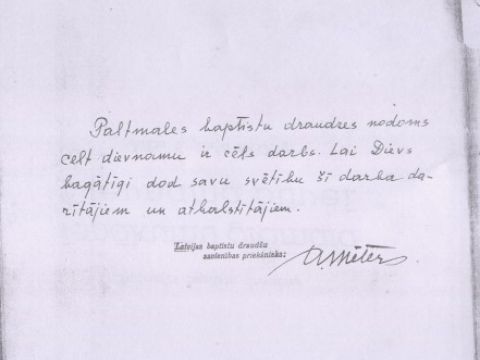 Paltmales baptistu draudzes nodoms
celt dievnamu ir cēls darbs. Lai Dievs
bagātīgi dod savu svētību šī darba da-
rītājiem un atbalstītājiem.
Latvijas baptistu draudžu
savienības priekšnieks: